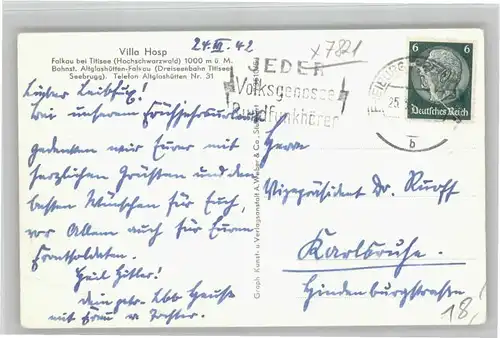 Villa Hosp
Falkau bei Titisee (Hochschwarzwald) 1000 m ü. M.
Bahnst. Altglashütten-Falkau (Dreiseenbahn Titisee
Seebrugg). Telefon Altglashütten Nr. 31
x7821
Lieber Leibfux!
Bei unserem Frühjahrsurlaub
gedenken wir Eurer mit
herzlichen Grüßen und den
besten Wünschen für Euch,
vor Allem auch für Euren
Frontsoldaten.
Heil Hitler!
Dein
mit Frau u. Tochter.
Graph. Kunst- u. Verlagsanstalt A. Weber & Co., Stuttgart
JEDER
Volksgenosse
Rundfunkhörer
FREIBURG
25.
b
6 6
Deutsches Reich
Herrn
Vizepräsident Dr.
Karlsruhe.
Hindenburgstraße
18,